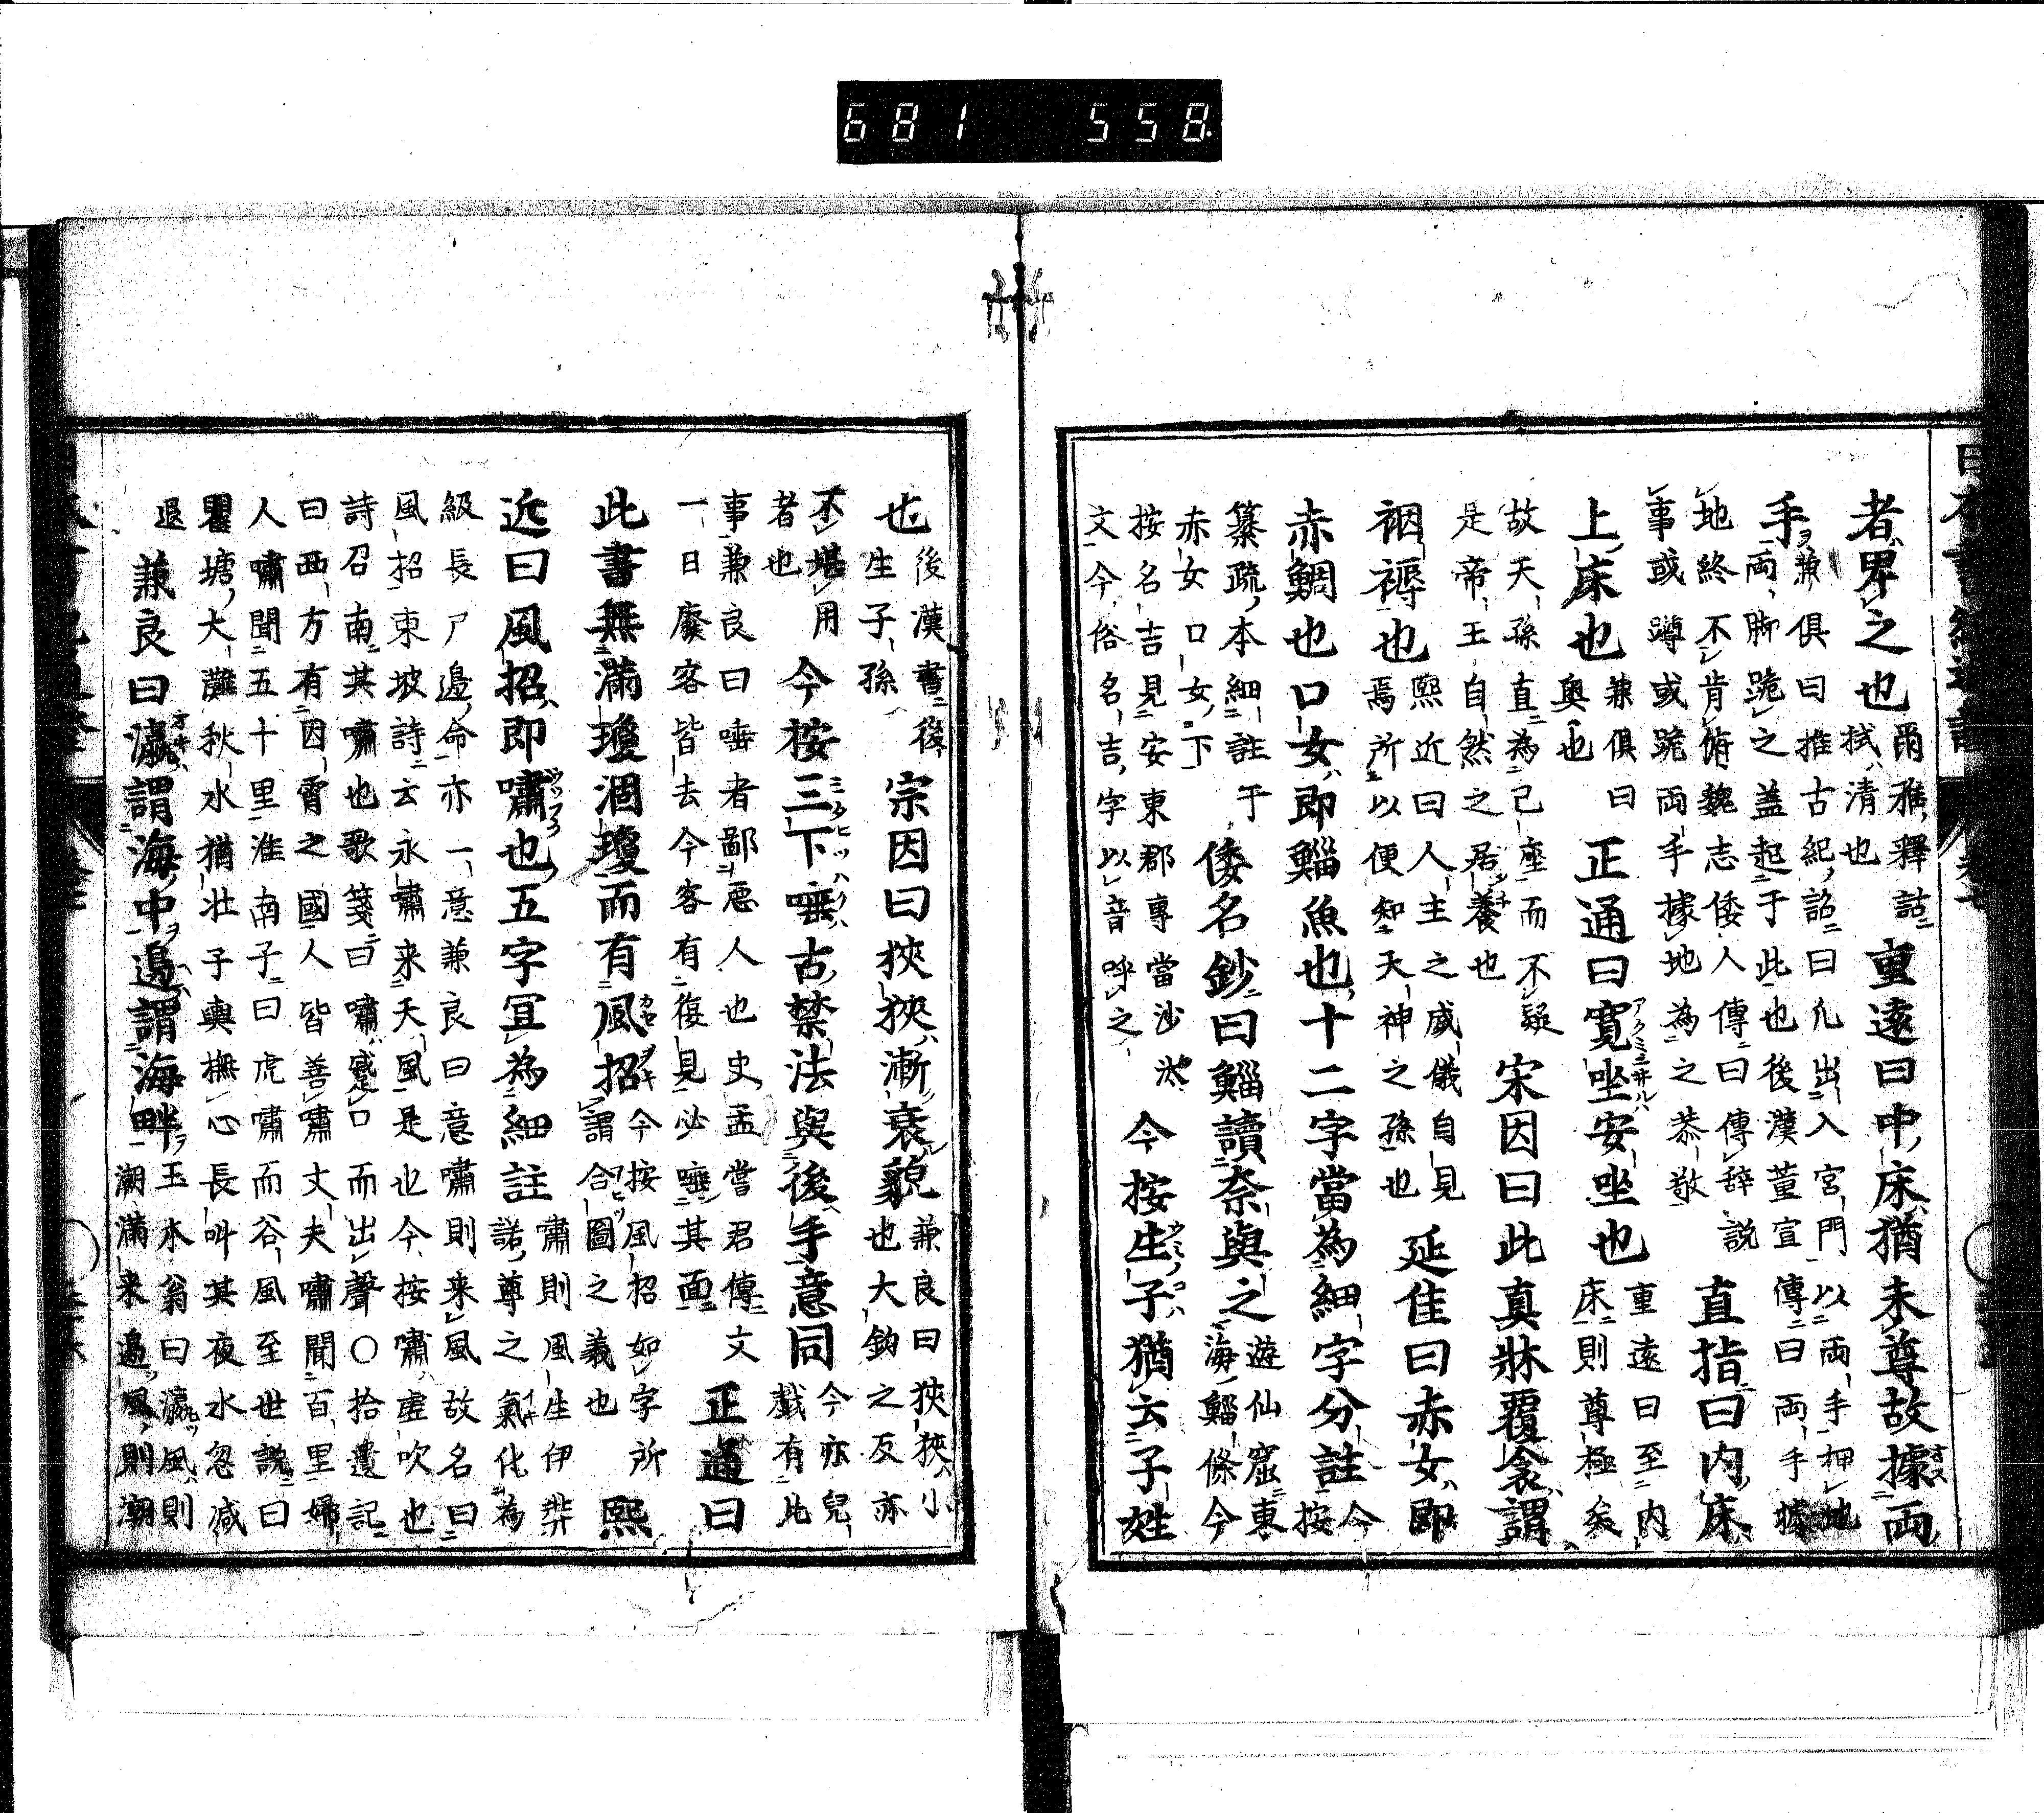 者卑之也爾雅釋詁
拭清也重遠曰中床猶未尊故據両
手兼倶曰推古紀詔曰凡出入宮門以両手押地
両脚跪之蓋起于此也後漢董宣傳曰両手據
地終不肯俯魏志倭人傳曰傳辞説
事或蹲或跪両手據地為之恭敬直指曰内床
上床也兼倶曰
奥也正通曰寛坐安坐也重遠曰至内
床則尊極矣
故天孫直為己座而不疑
是帝王自然之居養也宋因曰此真牀覆衾謂
裀褥也熙近曰人主之威儀自見
焉所以便知天神之孫也延佳曰赤女即
赤鯛也口女即鯔魚也十二字當為細字分註今
按
纂疏本細註于
赤女口女下倭名鈔曰鯔讀奈與之遊仙窟東
海鯔條今
按名吉見安東郡專當沙汰
文今俗名吉字以音呼之今按生子猶云子姓
也後漢書後
生子孫宗因曰狹狹漸衰貌兼良曰狹狹小
也大鈎之反亦
不堪用
者也今按三下唾古禁法與後手意同今亦兒
戲有此
事兼良曰唾者鄙悪人也史孟嘗君傳文
一日廢客皆去今客有復見必唾其面正通曰
此書無滿瓊涸瓊而有風招今按風招如字所
謂合圖之義也熙
近曰風招即嘯也五字冝為細註嘯則風生伊弉
諾尊之氣化為
級長戸邊命亦一意兼良曰意嘯則来風故名曰
風招東坡詩云永嘯来天風是也今按嘯虚吹也
詩召南其嘯也歌箋曰嘯蹙口而出聲○拾遺記
曰西方有因霄之國人皆善嘯丈夫嘯聞百里婦
人嘯聞五十里淮南子曰虎嘯而谷風至世説曰
瞿塘大灘秋水猶壮子輿撫心長叫其夜水忽减
退兼良曰瀛謂海中邊謂海畔玉木翁曰瀛風則
潮滿来邊風則潮
681 558